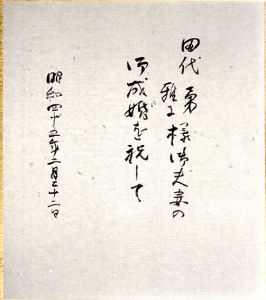 田代 勇
雅子 様御夫妻の
御成婚を祝して
昭和四十五年二月二十二日